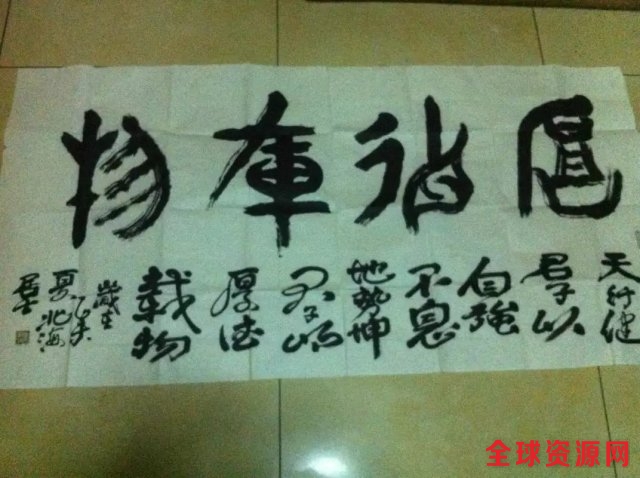 厚德載物
天行健
君子以
自強
不息
地势坤
君子以
厚德
載物
歲在
乙未
夏北海
全球资源网